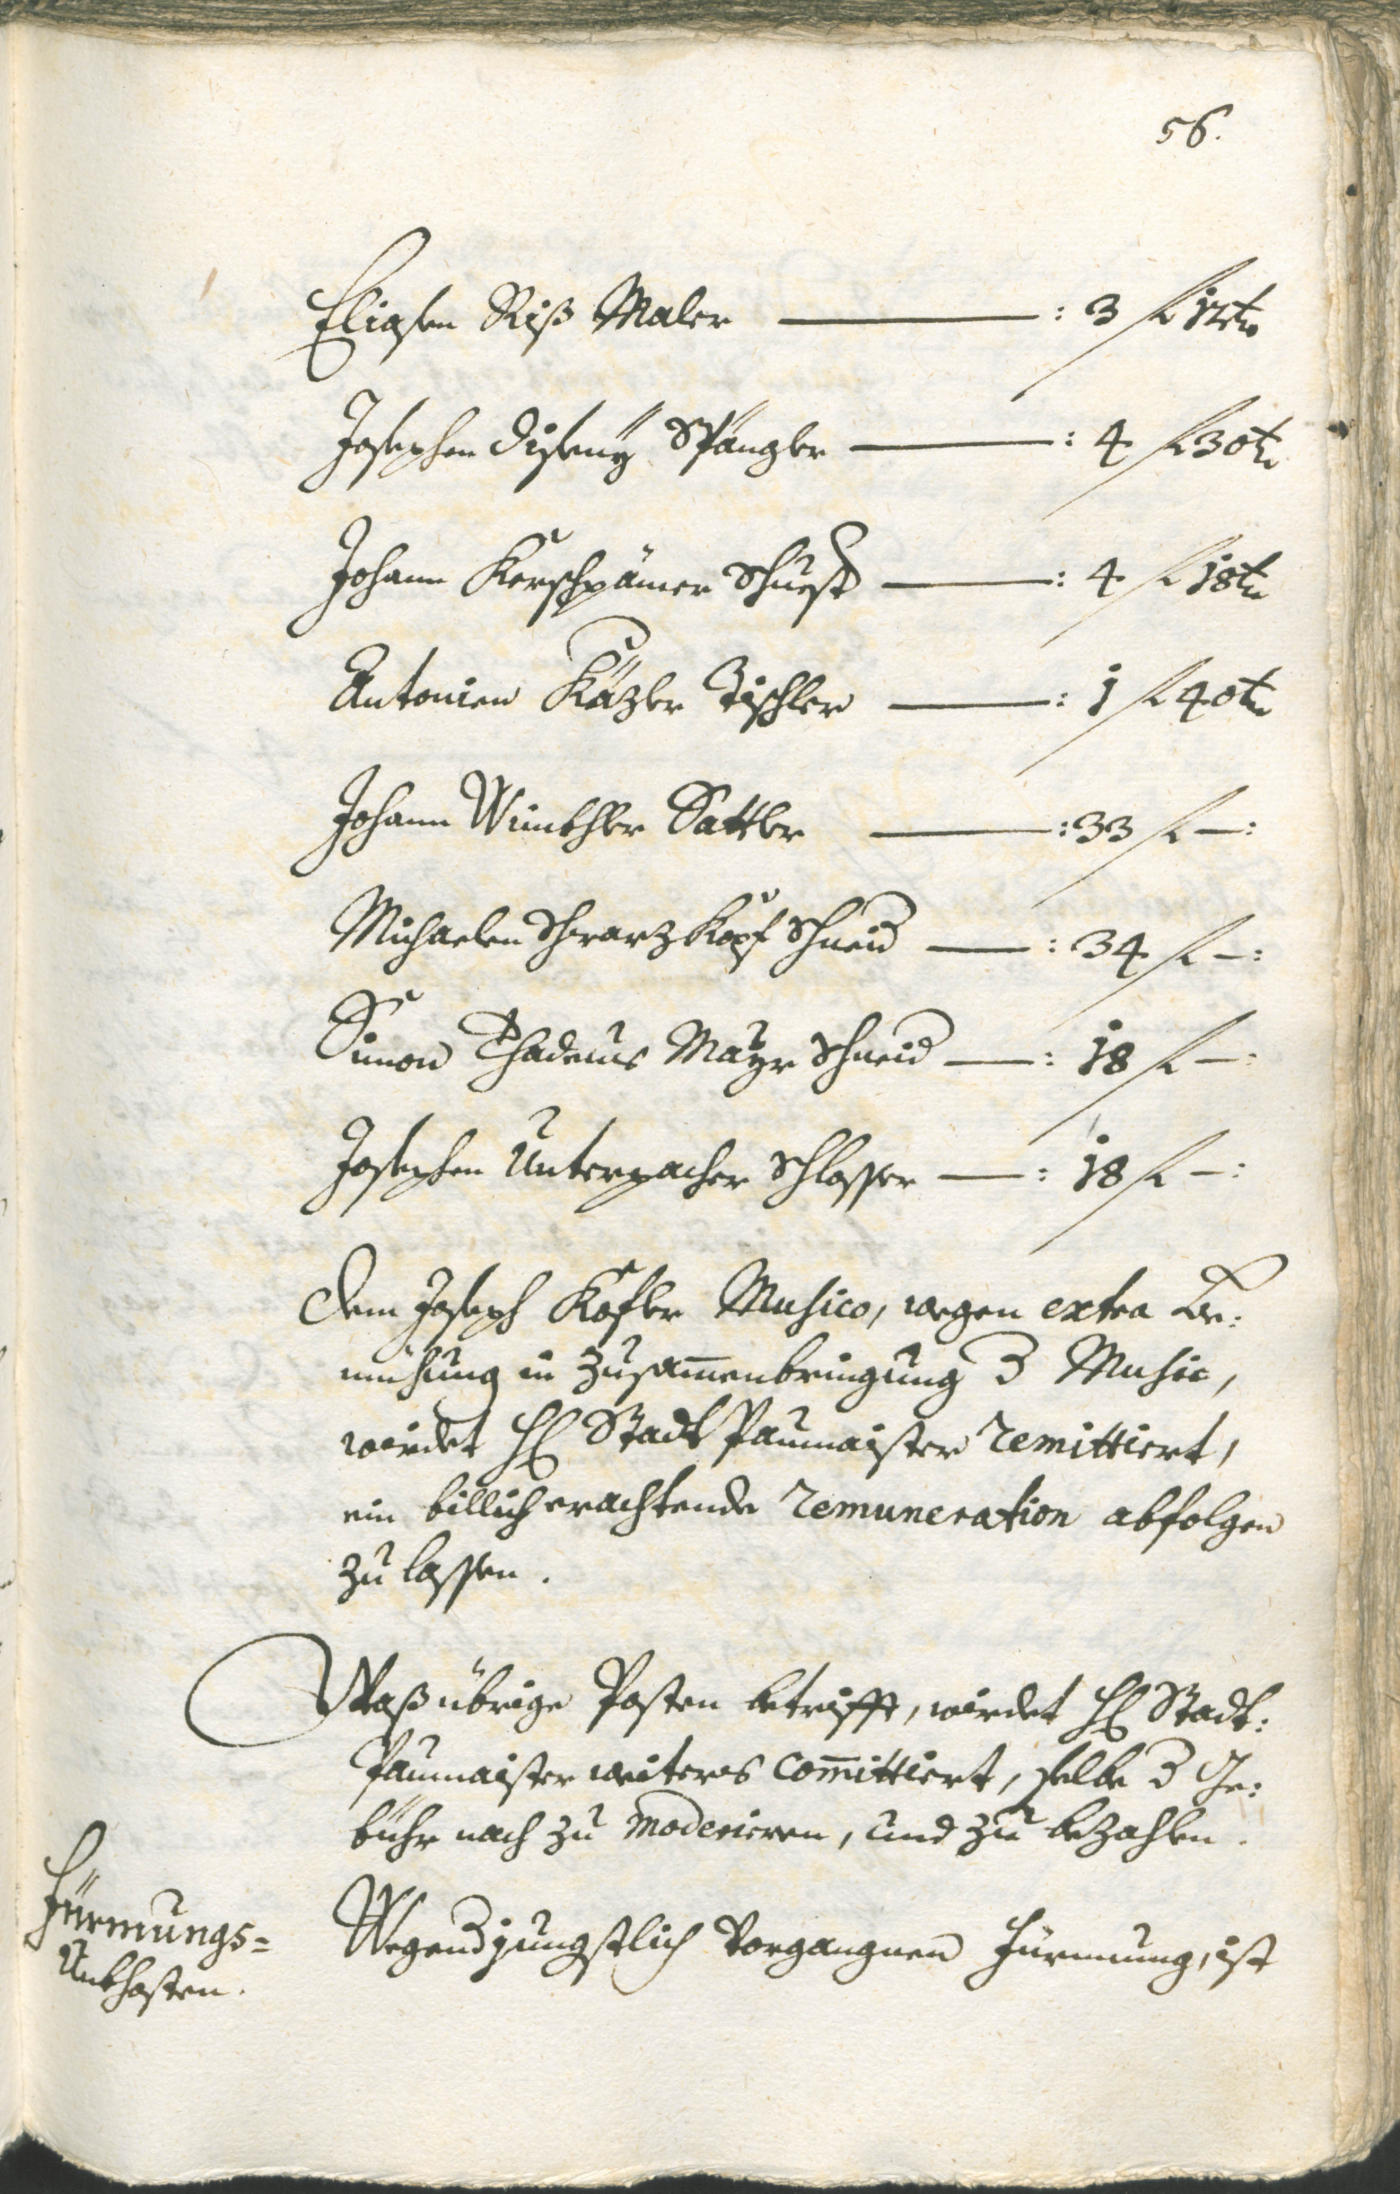 56.
Eliasen Riß Maler : 3 fl 12 kr
Josephen Diseny Spängler : 4 fl 30 kr
Johann Kerschpämer Schuest : 4 fl 18 kr
Antonien Käzler Tischler : 1 fl 40 kr
Johann Wimbhler Sattler : 33 fl — :
Michaelen Schwarzkopf Schneid : 34 fl — :
Simon Thadeus Mayr Schneid : 18 fl — :
Josephen Unterpacher Schlosser : 18 fl — :
Dem Joseph Kofler Musico, wegen extra Be:
müehung in Zusam̅enbringung d Music,
wirdet H Stadt Paumaister remittiert,
ein billich erachtende remuneration abfolgen
zu lassen.
Waß übrige Posten betrifft, wirdet H Stadt:
Paumaister weiters com̅ittiert, selbe d Ge:
bühr nach zu moderieren, und zu bezahlen.
Fürmungs=
Unkhosten.
Wegen d jungstlich Vorgangnen Fürmung, ist